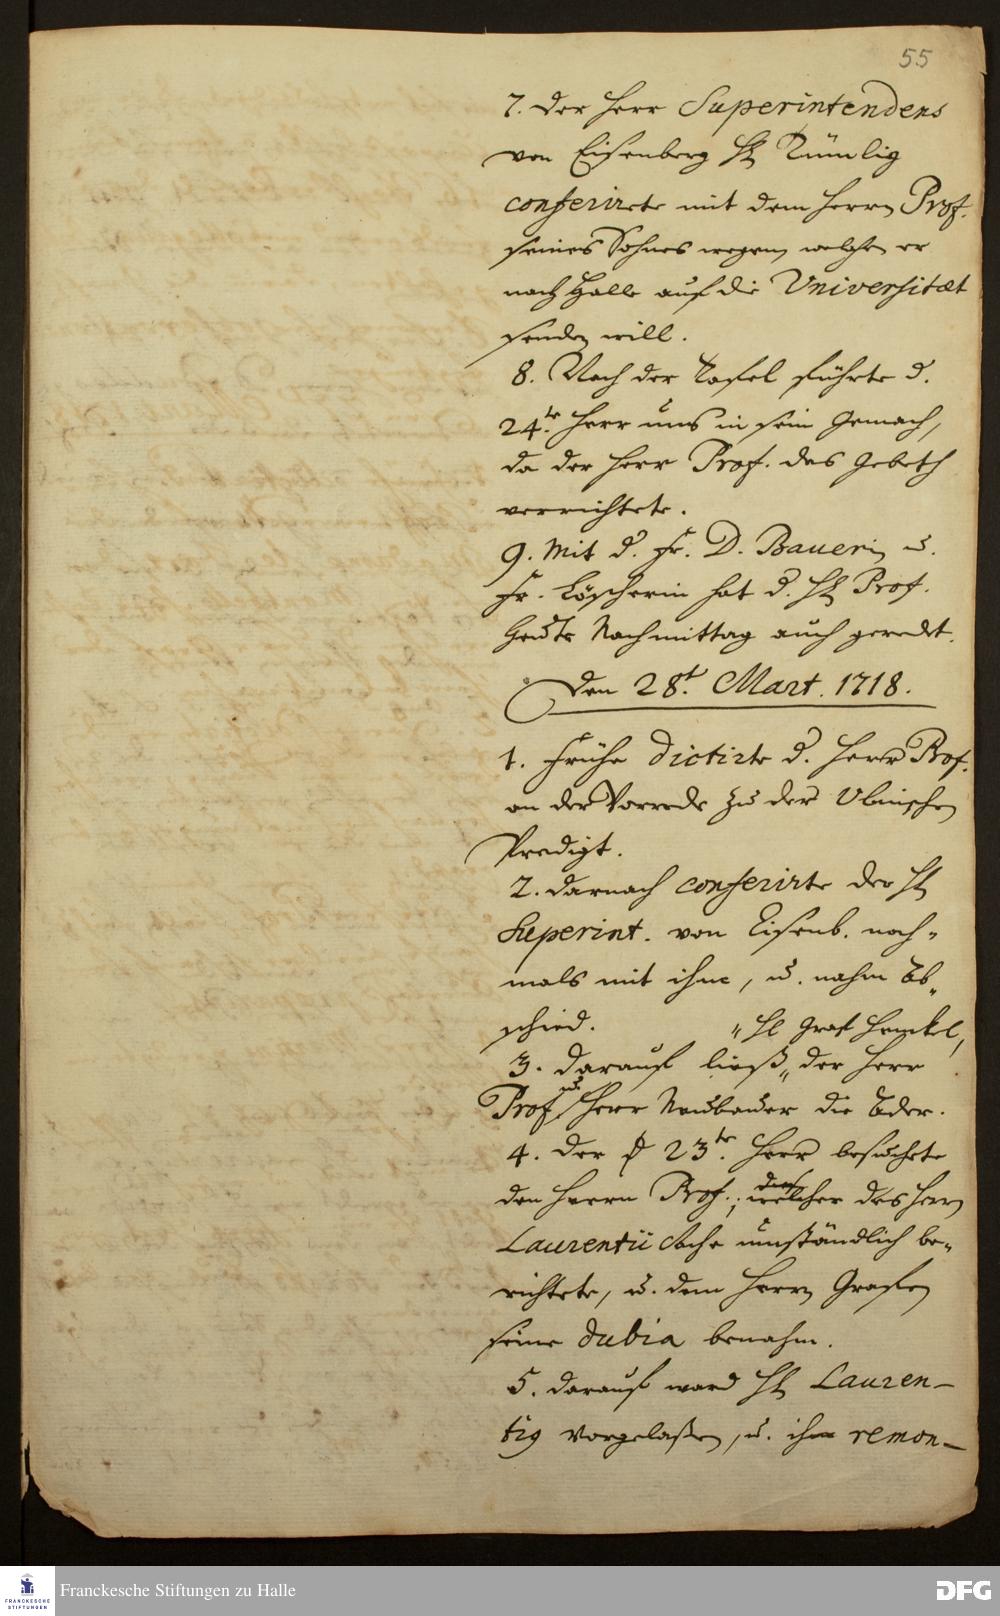 55
7. Der Herr Superintendens
von Eisenberg H.
conferirete mit dem Herrn Prof.
seines Sohnes wegen, welchen er
nach Halle auf die Universitæt
senden will.
8. Nach der Tafel führte d.
24.te Herr uns in sein Gemach,
da der Herr Prof. das Gebeth
verrichtete.
9. Mit d. Fr. D. Bauerin u.
Fr. Löscherin hat d. H. Prof.
heute Nachmittag auch geredet.
Den 28.t Mart. 1718.
1. Frühe dictirte d. Herr Prof.
an der Vorrede zu der Ulmischen
Predigt.
2. darnach conferirte der H.
Superint. von Eisenb. noch-
mals mit ihme, u. nahm Ab-
schied.
" H. Graf Henkel,
3. Darauf ließ " der Herr
Prof. u. Herr Neubauer die Ader.
4. Der 23.te Herr besuchte
den Herrn Prof.; welcher des Herrn
Laurentii Sache umständlich be-
richtete, u. dem Herrn Grafen
seine dubia benahm.
5. Darauf ward H. Lauren-
tig vorgelaßen, u. ihm remon-
Franckesche Stiftungen zu Halle
FRANCKESCHE
STIFTUNGEN
DFG